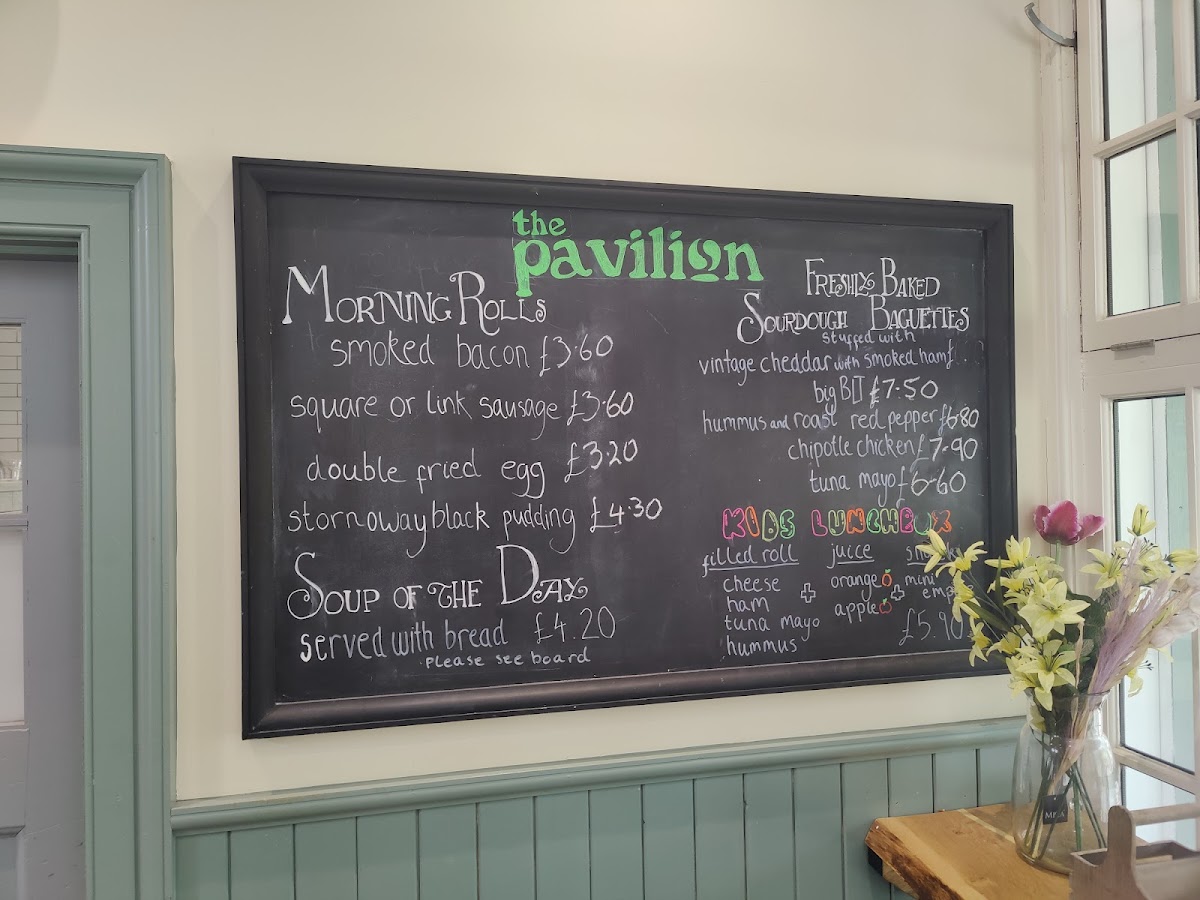 the
pavilion
MORNING ROLLS
smoked bacon £3.60
square or link sausage £3.60
double fried egg £3.20
stornoway black pudding £4.30
SOUP OF THE DAY
served with bread £4.20
please see board
FRESHLY BAKED
SOURDOUGH BAGUETTES
stuffed with
vintage cheddar with smoked ham £
big BLT £7.50
hummus and roast red pepper £6.80
chipotle chicken £7.90
tuna mayo £6.60
KIDS LUNCHBOX
filled roll juice
cheese + orange + mini
ham apple
tuna mayo
hummus £5.90